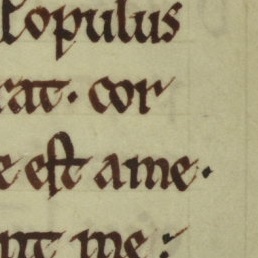 Populus
rat. cor
e est a me.
nt me: